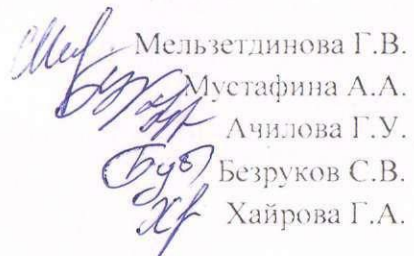 Мельзетдинова Г.В.
Мустафина А.А.
Ачилова Г.У.
Безруков С.В.
Хайрова Г.А.